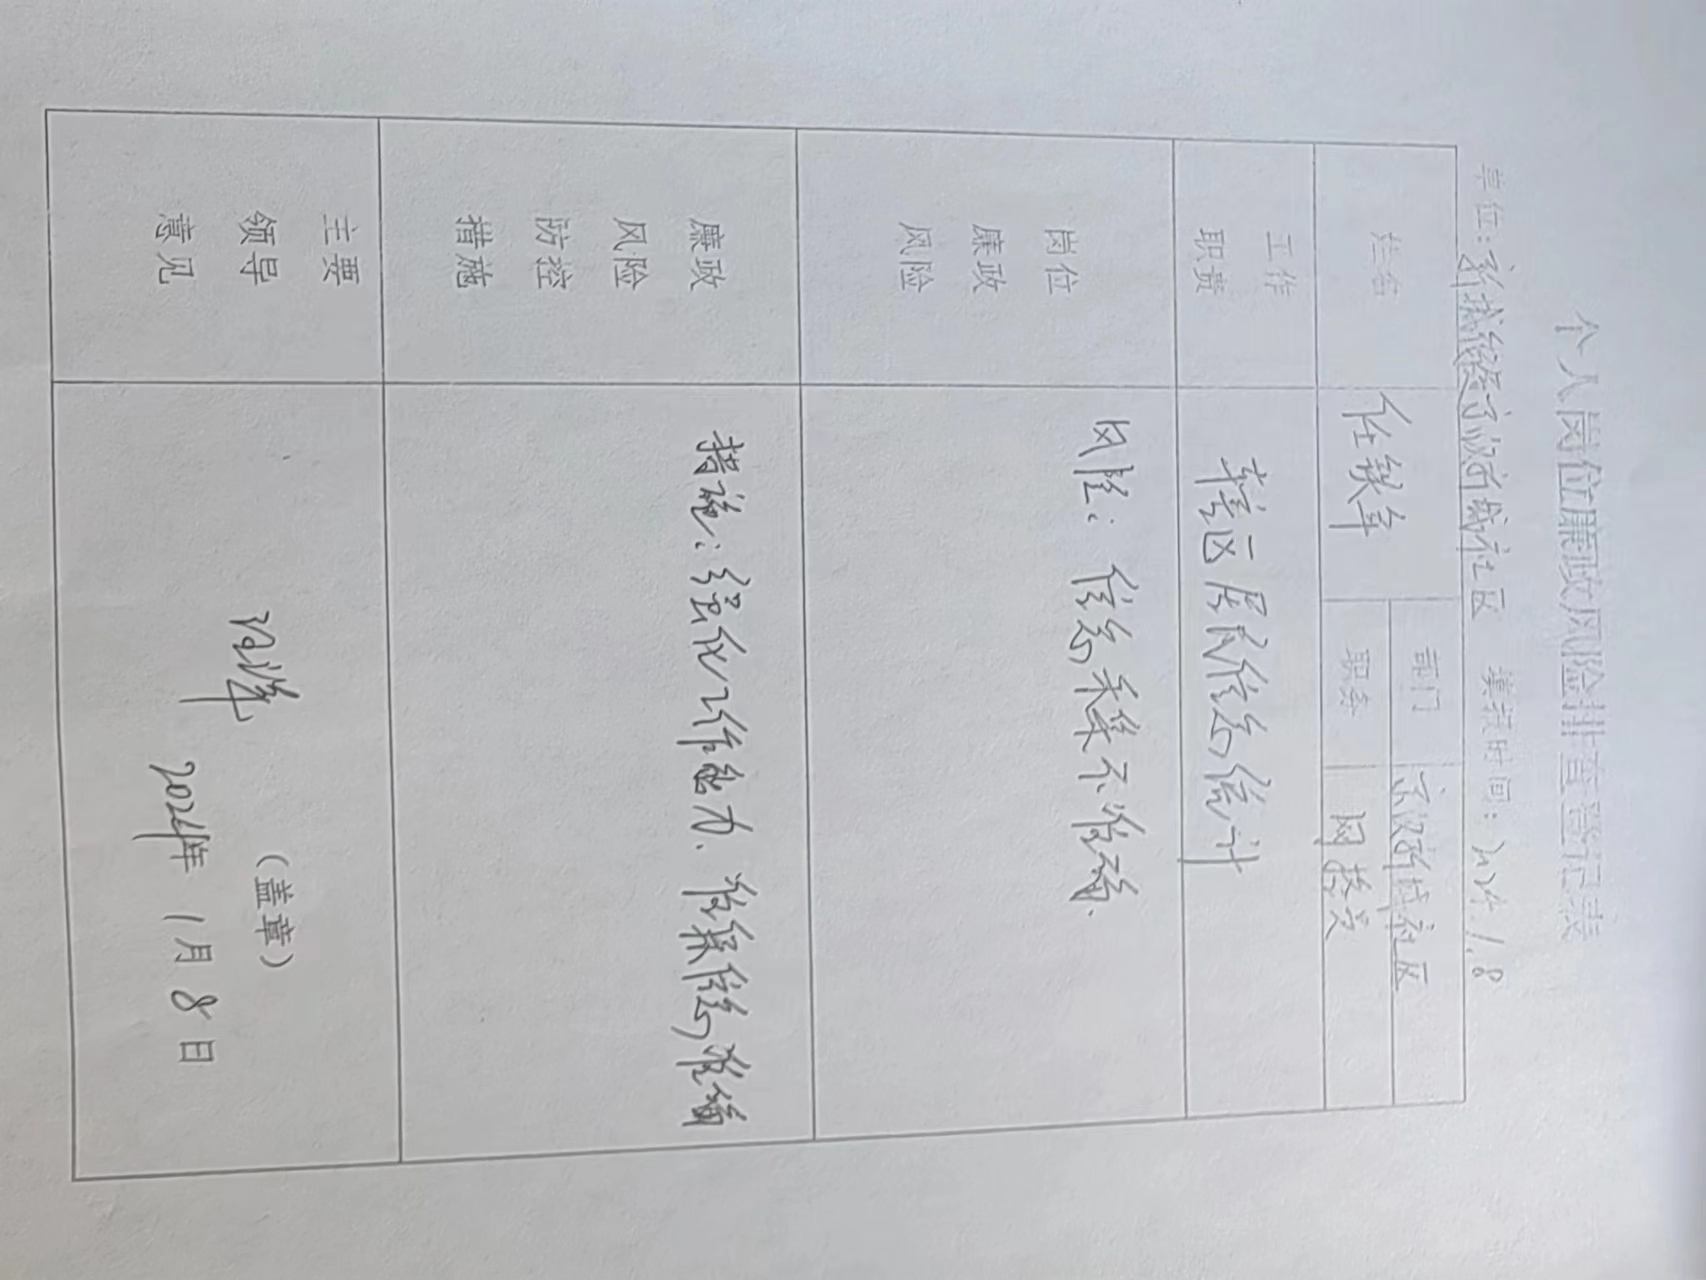 个人岗位廉政风险排查登记表
单位:新城街道京汉新城社区 填报时间:2024.1.8
姓名 任铁军 部门 京汉新城社区
职务 网格员
工作职责 辖区居民信息统计
岗位廉政风险 风险:信息采集不准确.
廉政风险防控措施 措施:强化工作能力.确保信息准确
主要领导意见
(盖章)
2024年 1月 8日